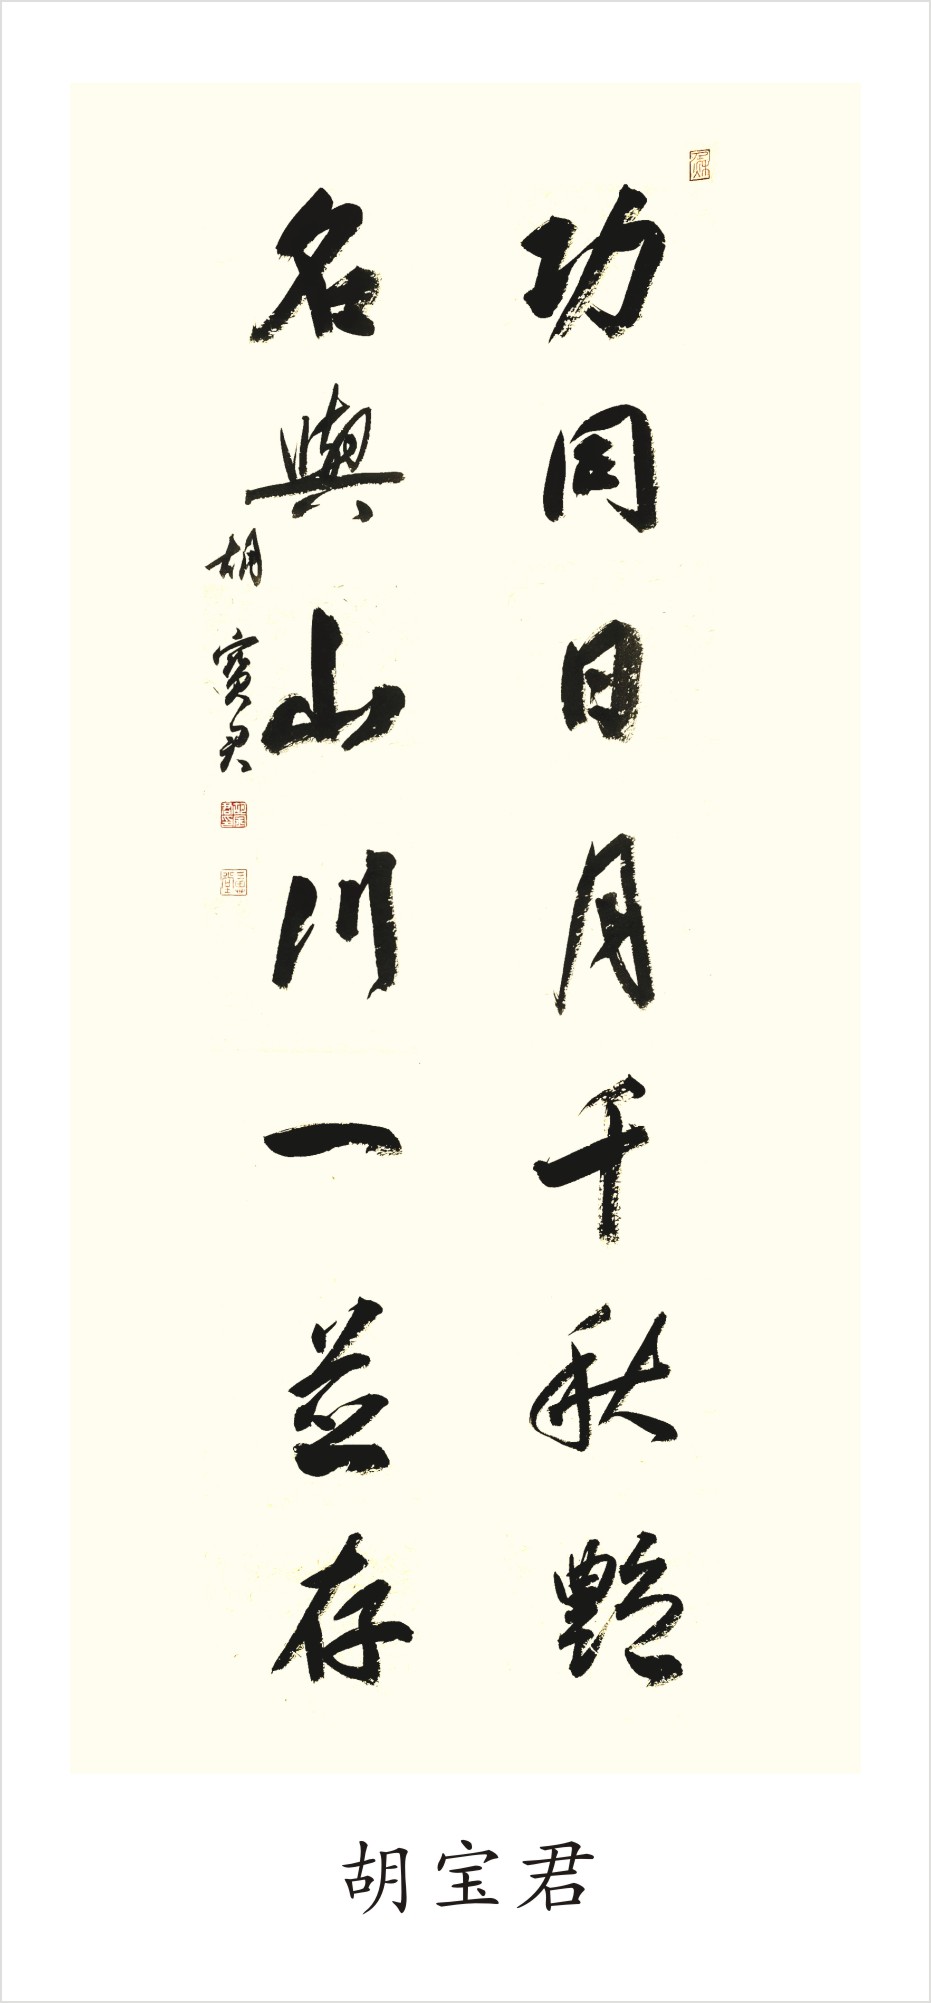 功同日月千秋艷
名與山川一並存
胡寶君
胡宝君